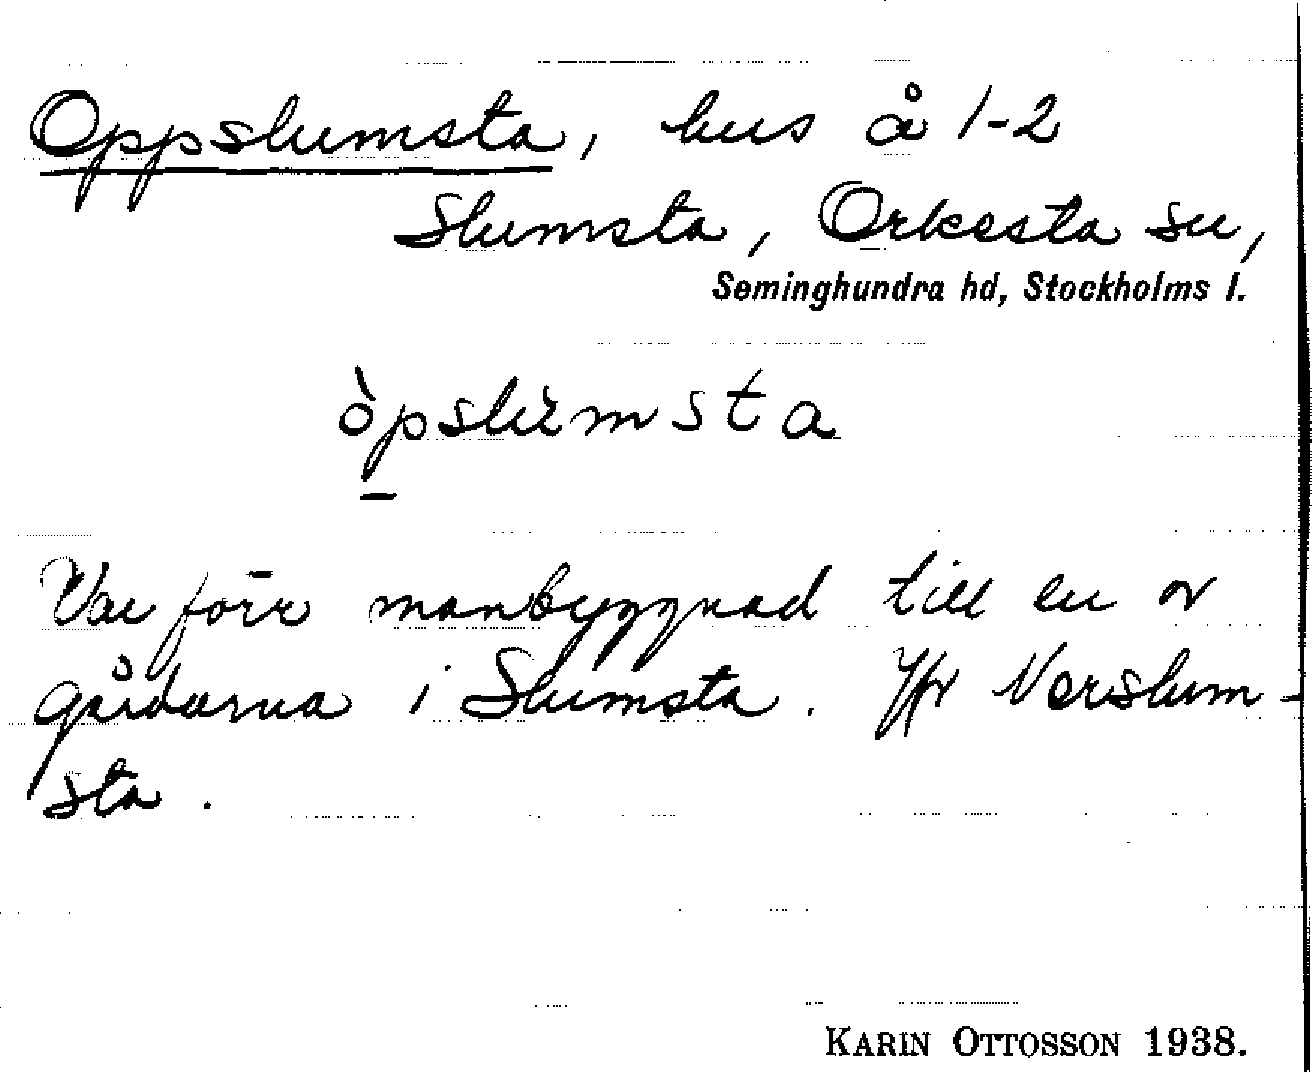 Oppslumsta, hus å 1-2
Slumsta, Orkesta sn,
Seminghundra hd, Stockholms l.
òpslùmsta
Var förr manbyggnad till en av
gårdarna i Slumsta. Jfr Norslum-
sta.
KARIN OTTOSSON 1938.